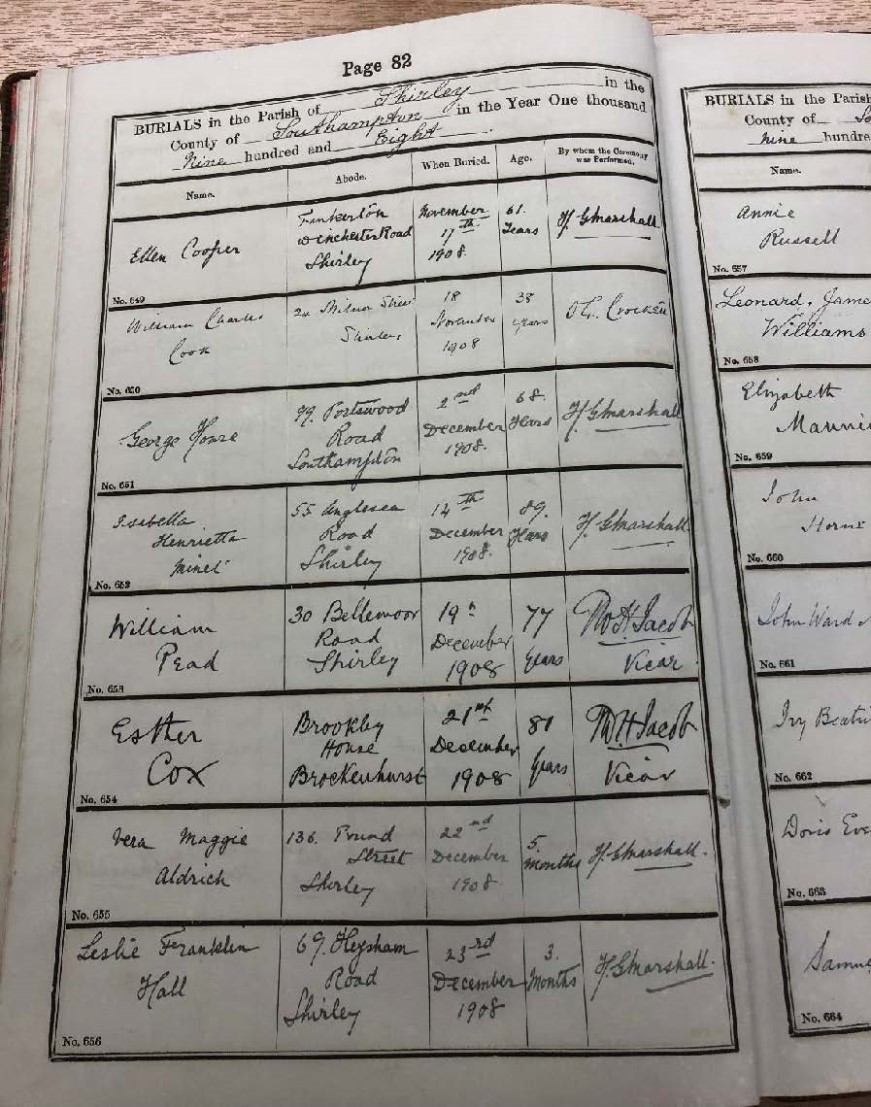 Page 82
BURIALS in the Parish of Shirley in the
County of Southampton in the Year One thousand
Nine hundred and Eight.
Name. Abode. When Buried. Age. By whom the Ceremony was Performed.
Ellen Cooper
Winchester Road
Shirley
November
17th
1908.
61.
Years
H. G Marshall.
No. 649
William Charles
Cook
Street
Shirley
18
November
1908
38
years
Crockett
No. 650
George
99. Portswood
Road
Southampton
2nd
December
1908.
68.
Years
H. G Marshall
No. 651
Isabella
Henrietta
55 Anglesea
Road
Shirley
14th
December
1908.
89.
Years
H. G Marshall.
No. 652
William
Pead
30 Bellemoor
Road
Shirley
19th
December
1908
77
Years
H Jacob
Vicar
No. 653
Esther
Cox
Brookley
House
Brockenhurst
21st
December
1908
81
Years
H Jacob
Vicar
No. 654
Vera Maggie
Aldrich
136. Pound
Street
Shirley
22nd
December
1908
5.
months
H. G Marshall.
No. 655
Leslie Franklin
Hall
69. Heysham
Road
Shirley
23rd
December
1908
3.
Months
H. G Marshall.
No. 656
BURIALS in the Parish
County of
Nine hundre
Name.
Annie
Russell
No. 657
Leonard. Jame
Williams
No. 658
Elizabeth
Manni
No. 659
John
Horne
No. 660
John Ward
No. 661
Ivy Beatri
No. 662
Doris Eve
No. 663
Samue
No. 664